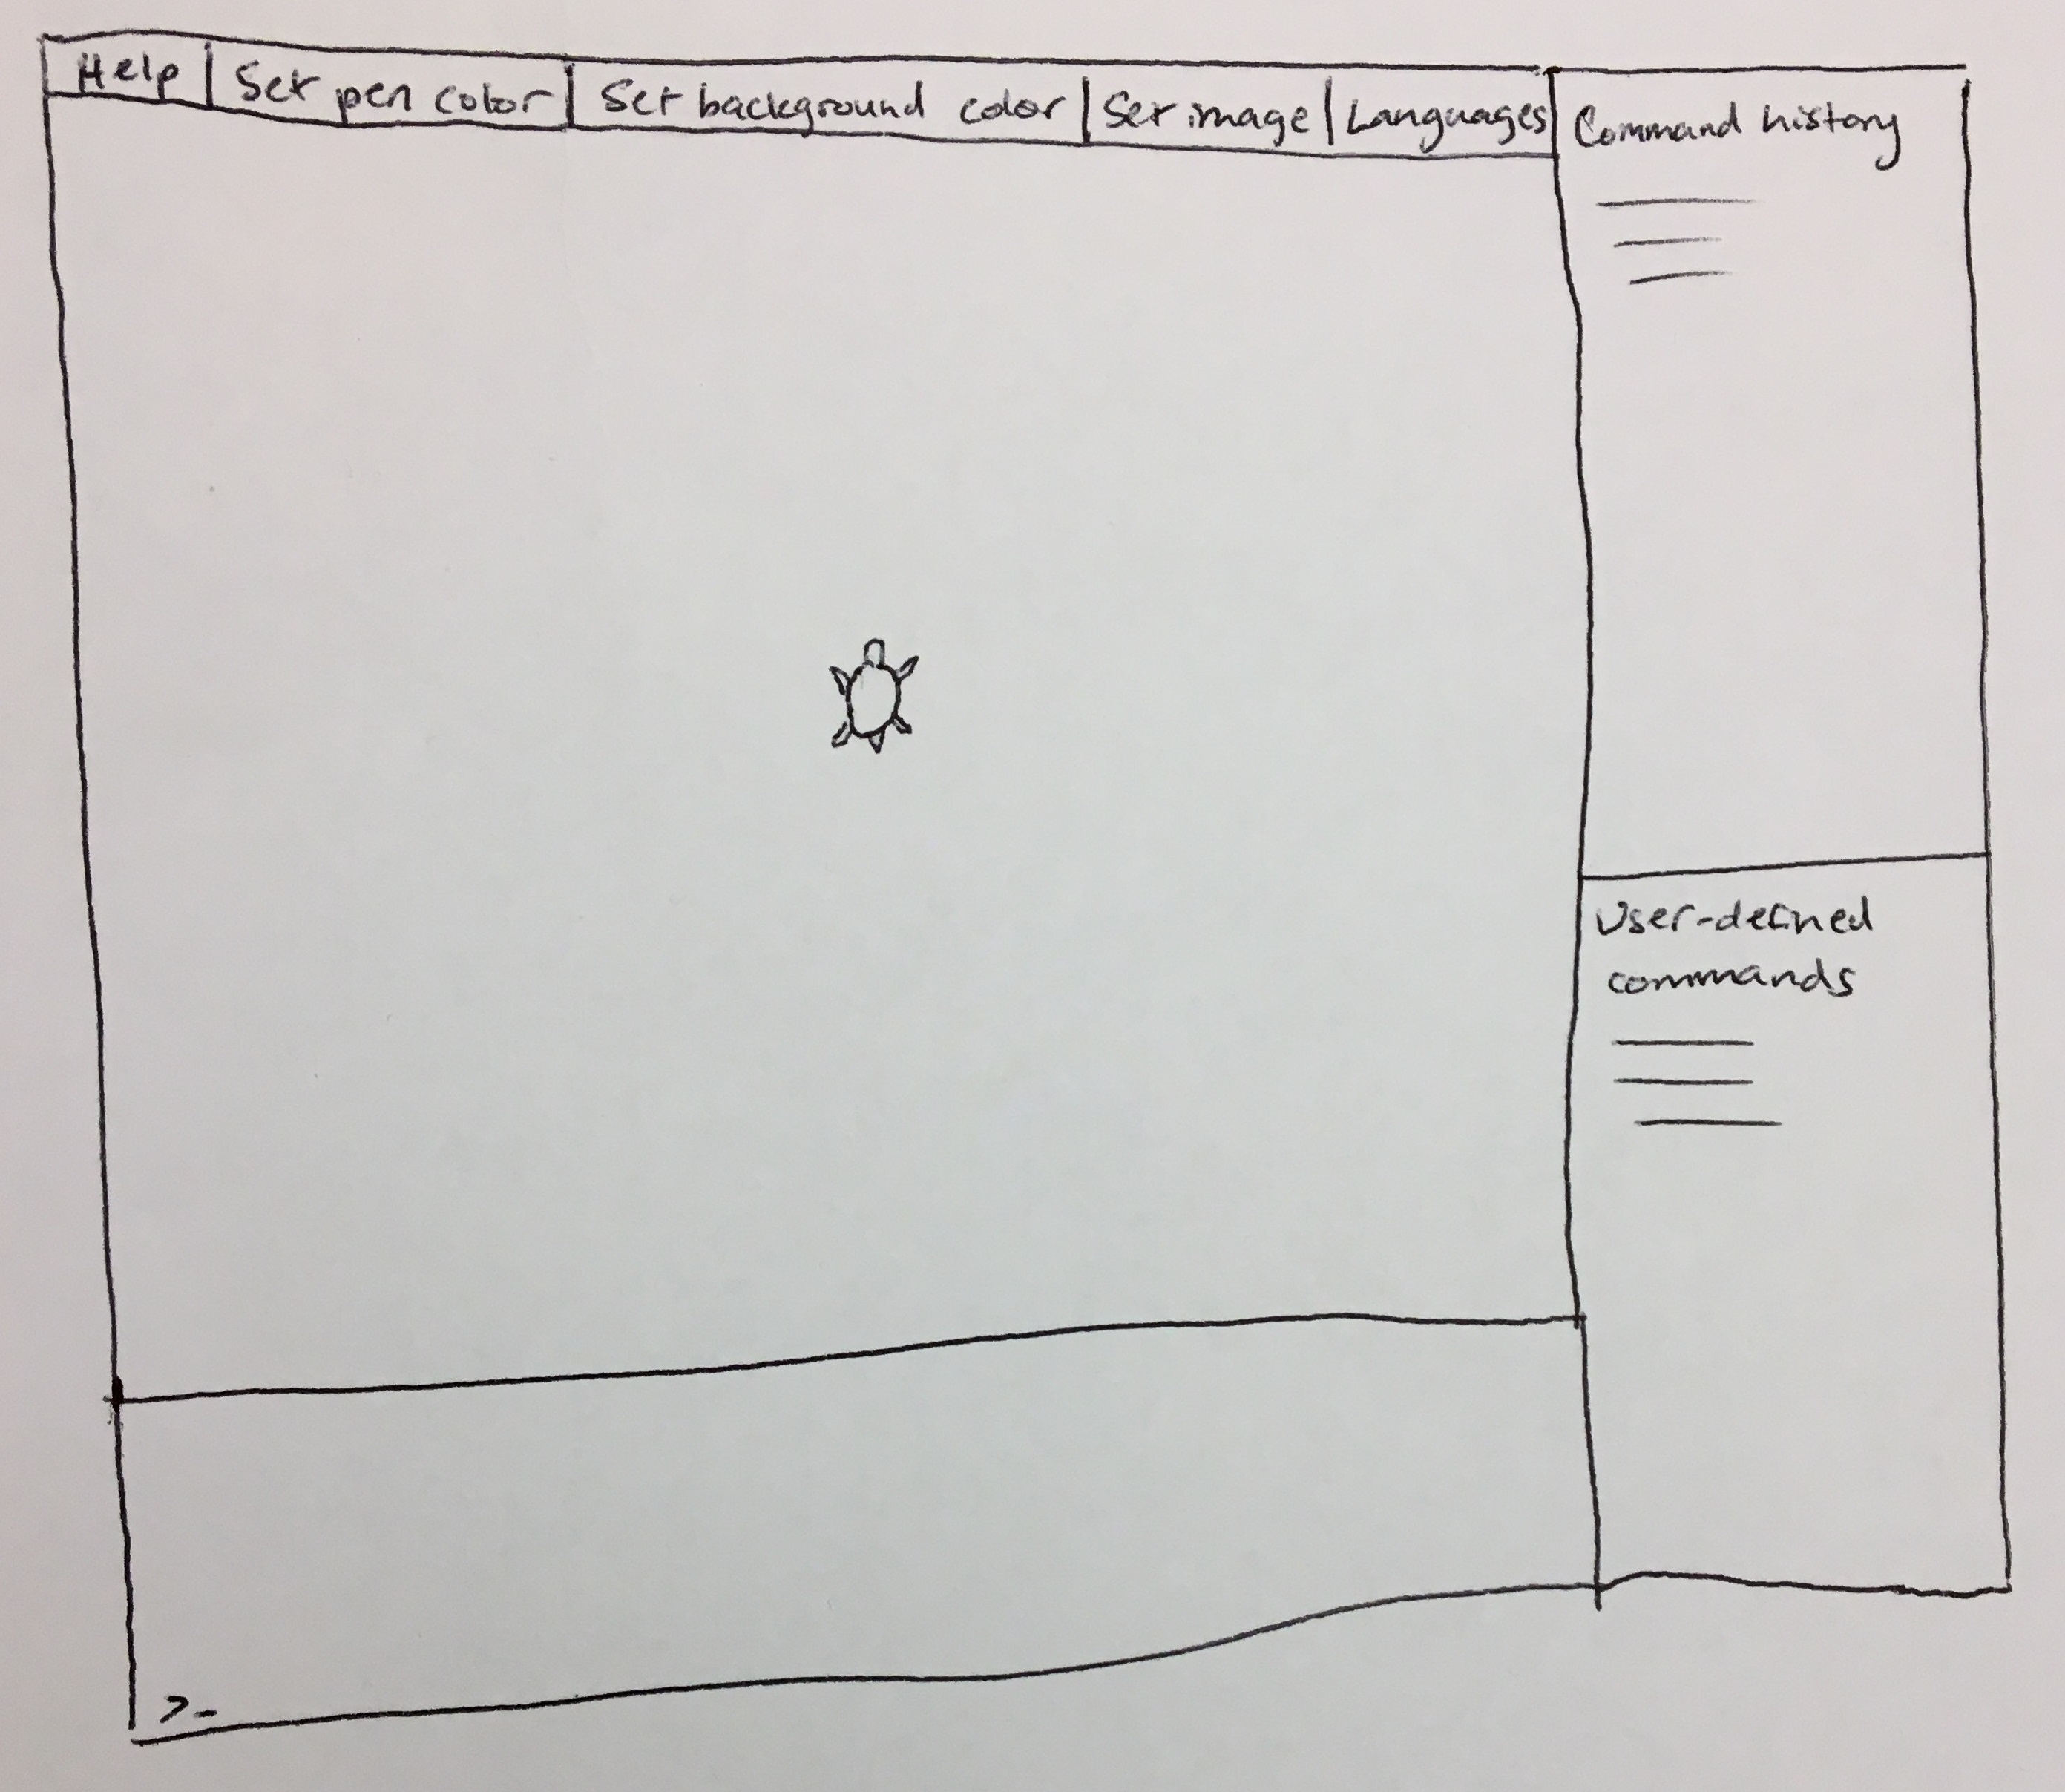 Help
Set pen color
Set background color
Set image
Languages
Command history
User-defined
commands
>-